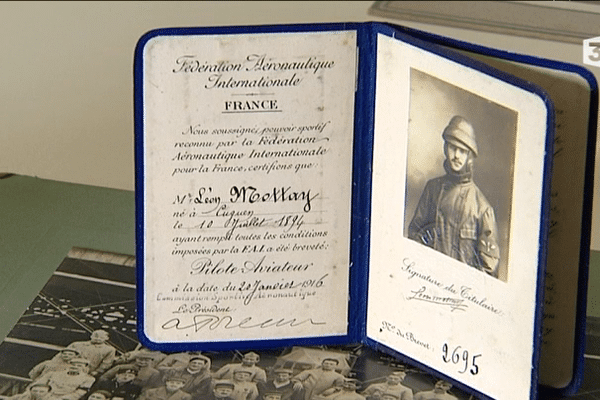 Fédération Aéronautique
Internationale
FRANCE
Nous soussignés pouvoir sportif
reconnu par la Fédération
Aéronautique Internationale
pour la France, certifions que:
Mr Léon Mottay
né à Cuguen
le 10 Juillet 1894
ayant rempli toutes les conditions
imposées par la F.A.I. a été breveté:
Pilote-Aviateur
à la date du 20 Janvier 1916
Commission Sportive Aéronautique
Le Président
Signature du Titulaire
No du Brevet: 2695
3